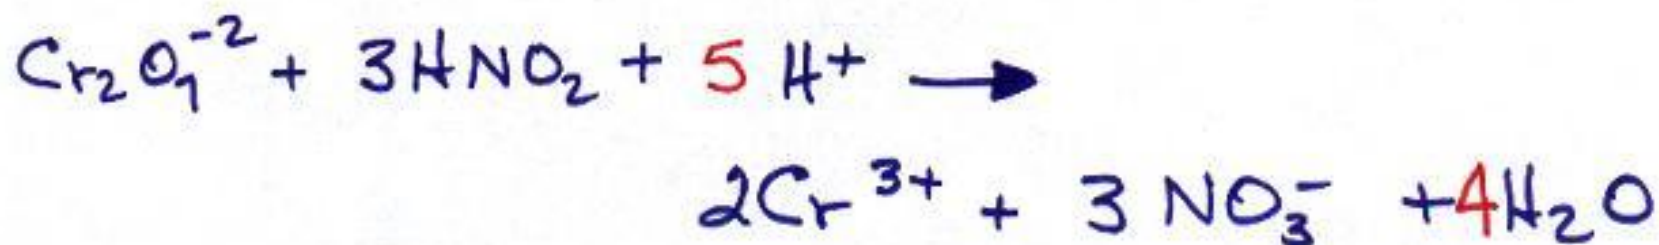 Cr₂O₇⁻² + 3HNO₂ + 5 H⁺ →
2Cr³⁺ + 3 NO₃⁻ + 4H₂O